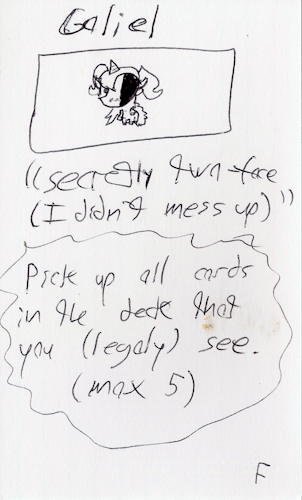 Galiel
"(secretly two-face
(I didn't mess up)"
Pick up all cards
in the deck that
you (legaly) see.
(max 5)
F